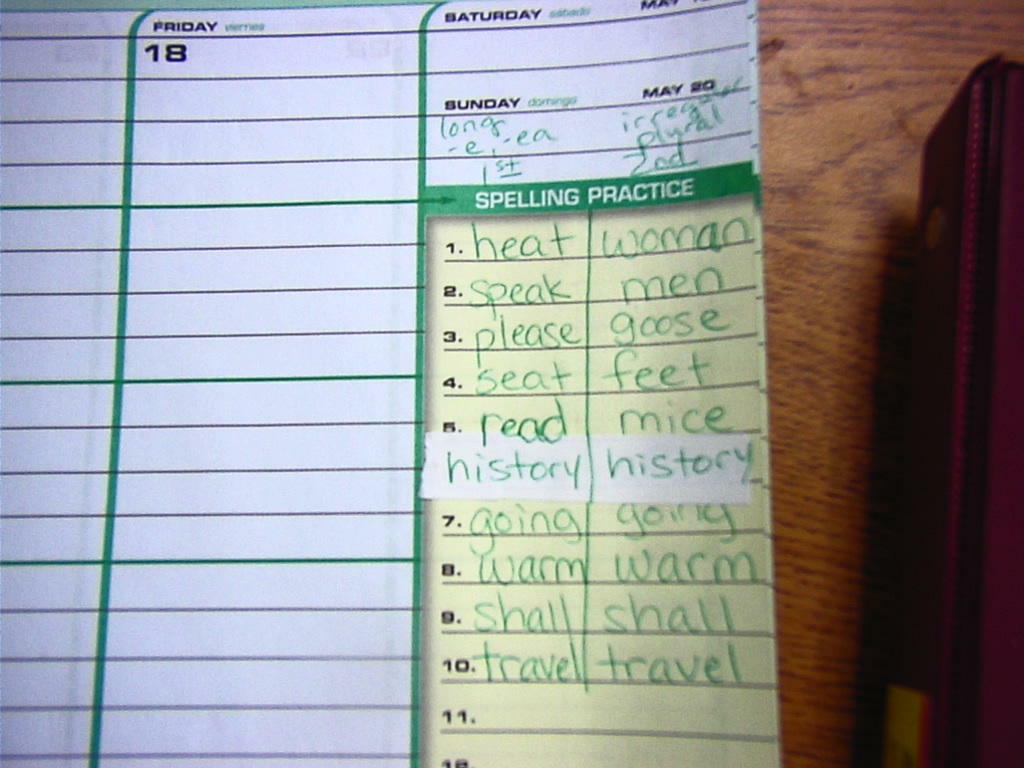 FRIDAY viernes
18
SATURDAY sábado MAY
SUNDAY domingo MAY 20
long irregular
-e, -ea plural
1st 2nd
SPELLING PRACTICE
1. heat woman
2. speak men
3. please goose
4. seat feet
5. read mice
history history
7. going going
8. warm warm
9. shall shall
10. travel travel
11.
12.